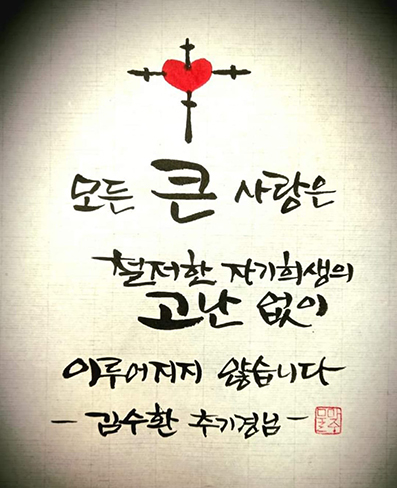 모든 큰 사랑은
철저한 자기희생의
고난 없이
이루어지지 않습니다
- 김수환 추기경님 -